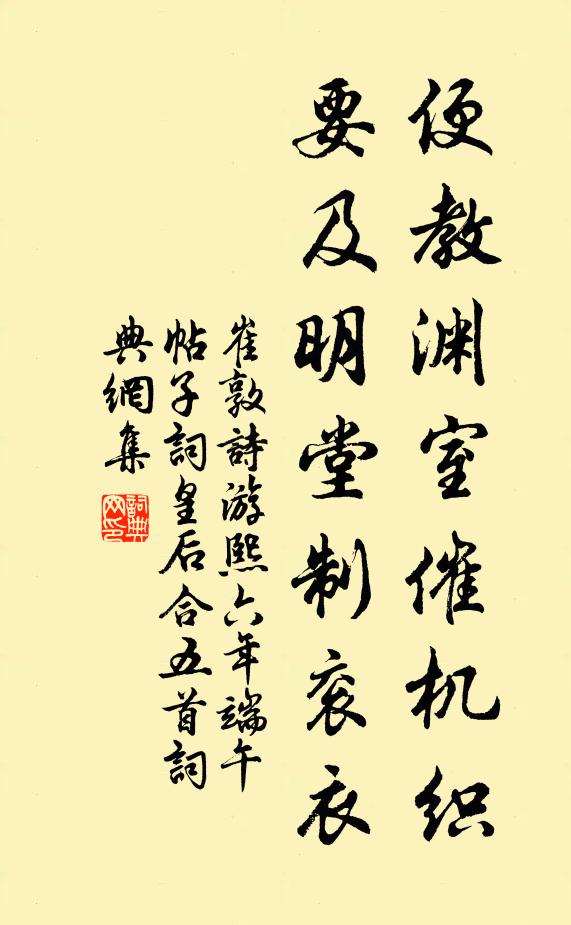 便教渊室催机织
要及明堂制衮衣
崔敦詩游熙六年端午
帖子詞皇后合五首詞
典網集
詞典網印